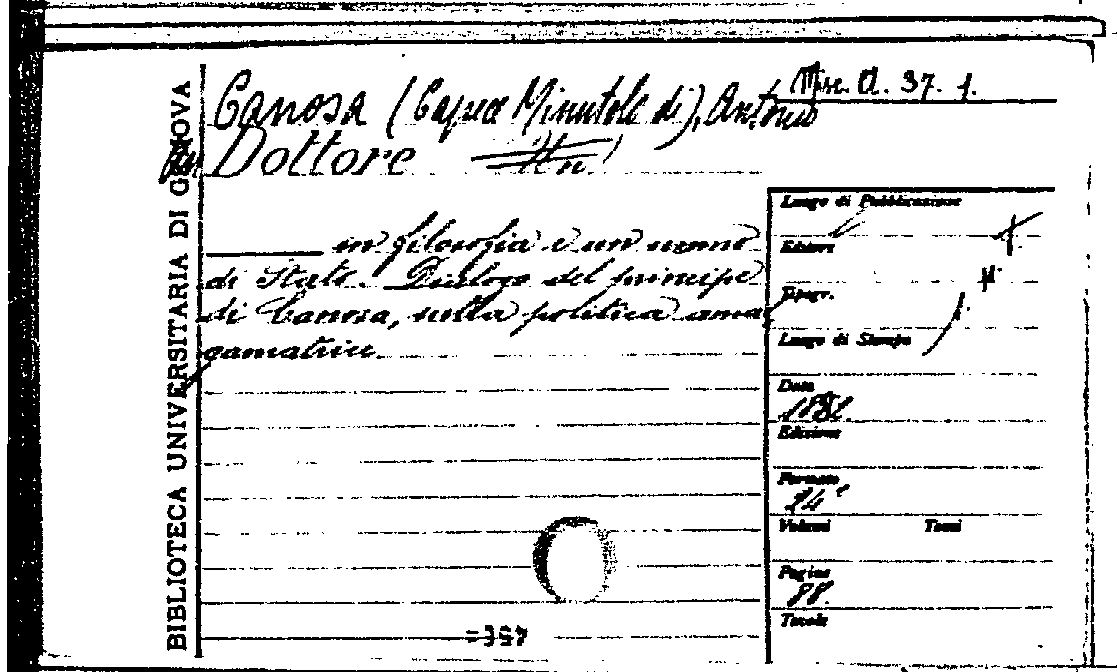 BIBLIOTECA UNIVERSITARIA DI GENOVA
Canosa (Capece Minutolo di), Antonio
Misc. A. 37. 1.
Un Dottore
in filosofia e un uomo
di Stato. Dialogo del principe
di Canosa, sulla politica amal
gamatrice
Luogo di Pubblicazione
Editore
Tipogr.
Luogo di Stampa
Data
Edizione
Formato
24°
Volumi Tomi
Pagine
88.
Tavole